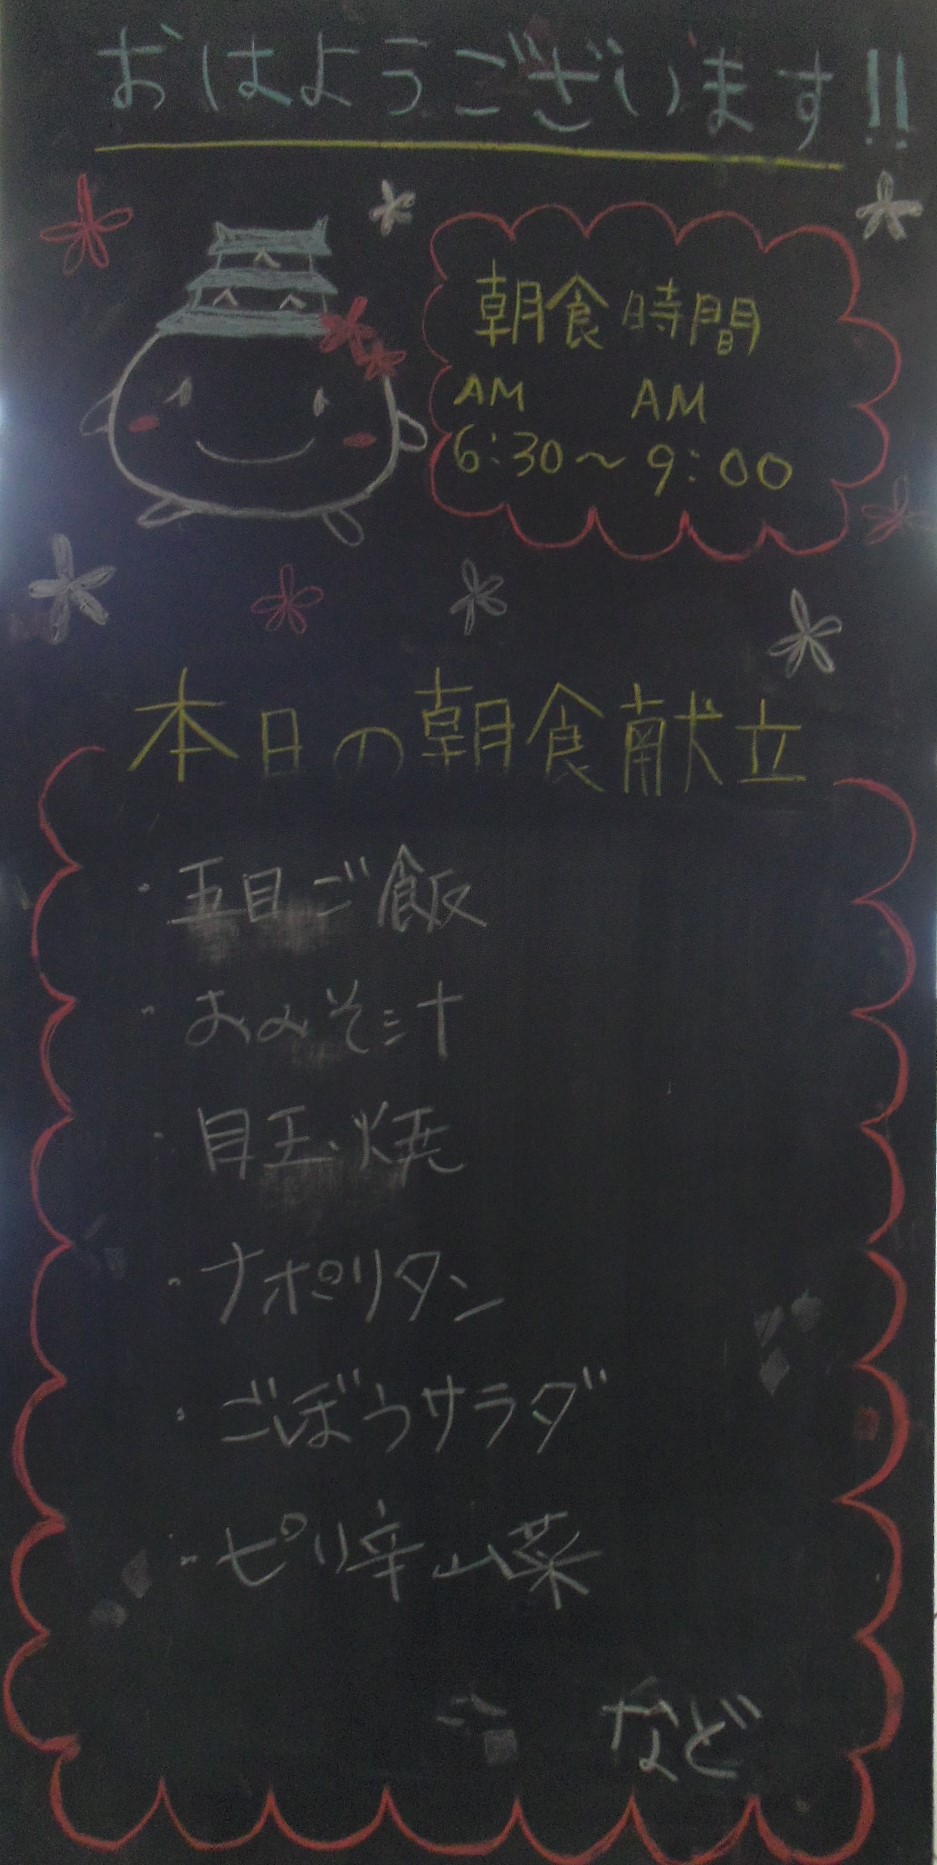 おはようございます!!
朝食時間
AM AM
6:30～9:00
本日の朝食献立
・五目ご飯
・おみそ汁
・目玉焼
・ナポリタン
・ごぼうサラダ
・ピリ辛山菜
など